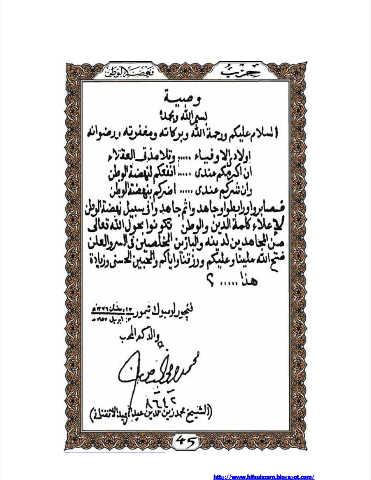 نهضة الوطن
حزب
وصية
بسم الله وبحمده
السلام عليكم ورحمة الله وبركاته ومغفرته ورضوانه
اولادى الاوفياء ..... وتلامذتى العقلاء
ان اكرمكم عندى .... انفعكم لنهضة الوطن
وان شركم عندى .... اضركم بنهضة الوطن
فصابروا ورابطوا وجاهدوا فى سبيل نهضة الوطن
لإعلاء كلمة الدين والوطن تكونوا بحول الله تعالى
من المجاهدين لدينه والبارزين المخلصين فى السر والعلن
فتح الله علينا وعليكم ورزقنا واياكم والمحبين الحسنى وزيادة
هذا ..... ؟
فنچور لومبوك تيمور
والدكم المحب
(الشيخ محمد زين الدين عبد المجيد
45
http://www.hifzulnzam.blogspot.com/